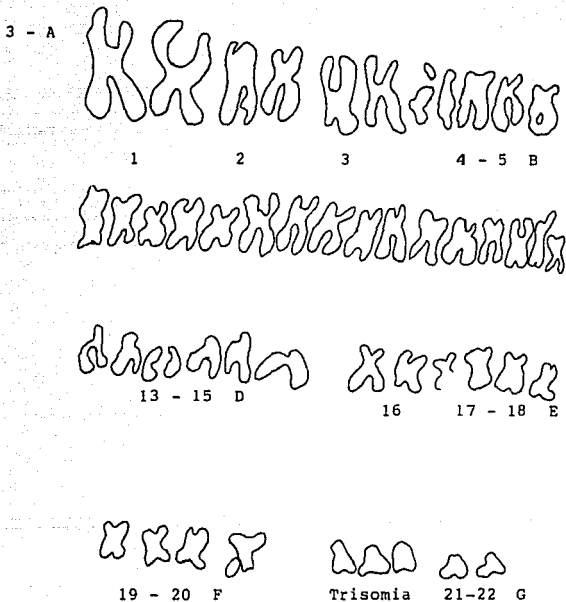 3 - A
1 2 3 4 - 5 B
13 - 15 D 16 17 - 18 E
19 - 20 F Trisomia 21-22 G